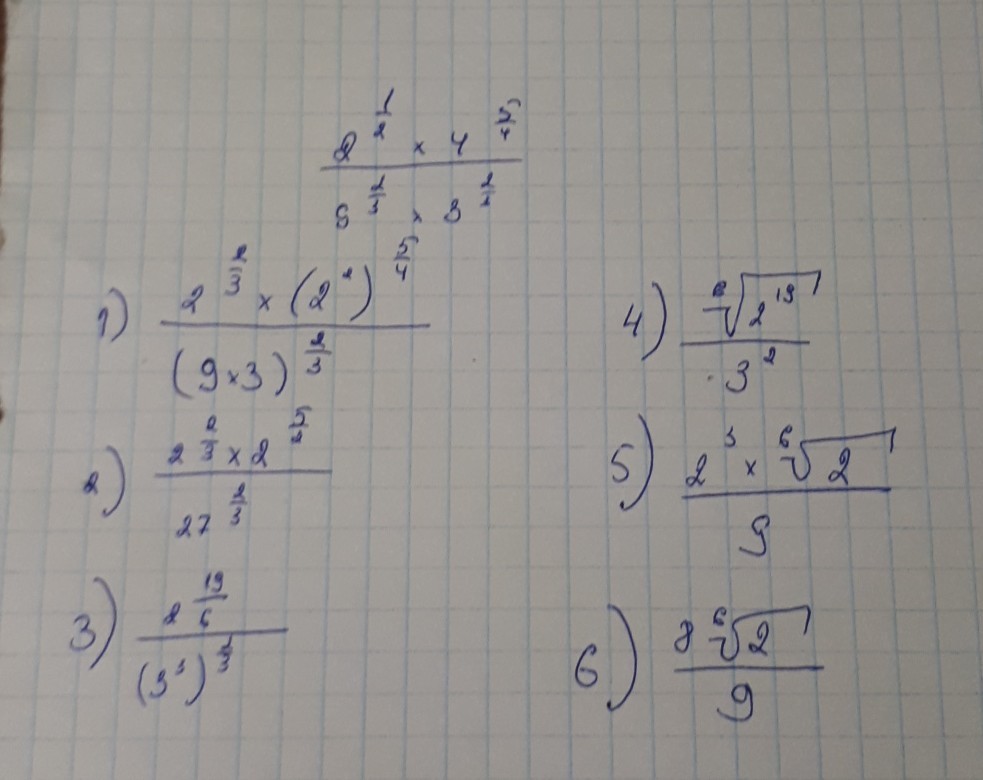 2^(1/2) × 4^(5/4)
9^(2/3) × 3^(2/3)
1) 2^(2/3) × (2^2)^(5/4)
(9×3)^(2/3)
2) 2^(2/3) × 2^(5/2)
27^(2/3)
3) 2^(19/6)
(3^3)^(2/3)
4) ⁶√2^19
3^2
5) 2^3 × ⁶√2
9
6) 8 ⁶√2
9